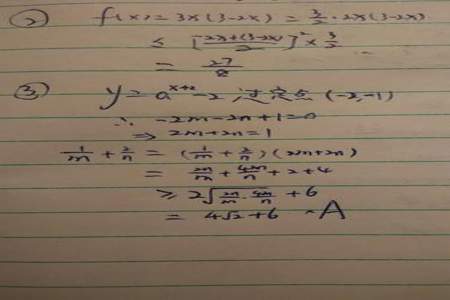 ② f(x)=3x(3-2x)=3/2·2x(3-2x)
≤[2x+(3-2x)/2]²×3/2
=27/8
③ y=a^(x+2)-2 过定点(-2,-1)
∴ -2m-2n+1=0
⇒ 2m+2n=1
1/m+2/n=(1/m+2/n)(2m+2n)
=2n/m+4m/n+2+4
≥2√(2n/m·4m/n)+6
=4√2+6 ~A